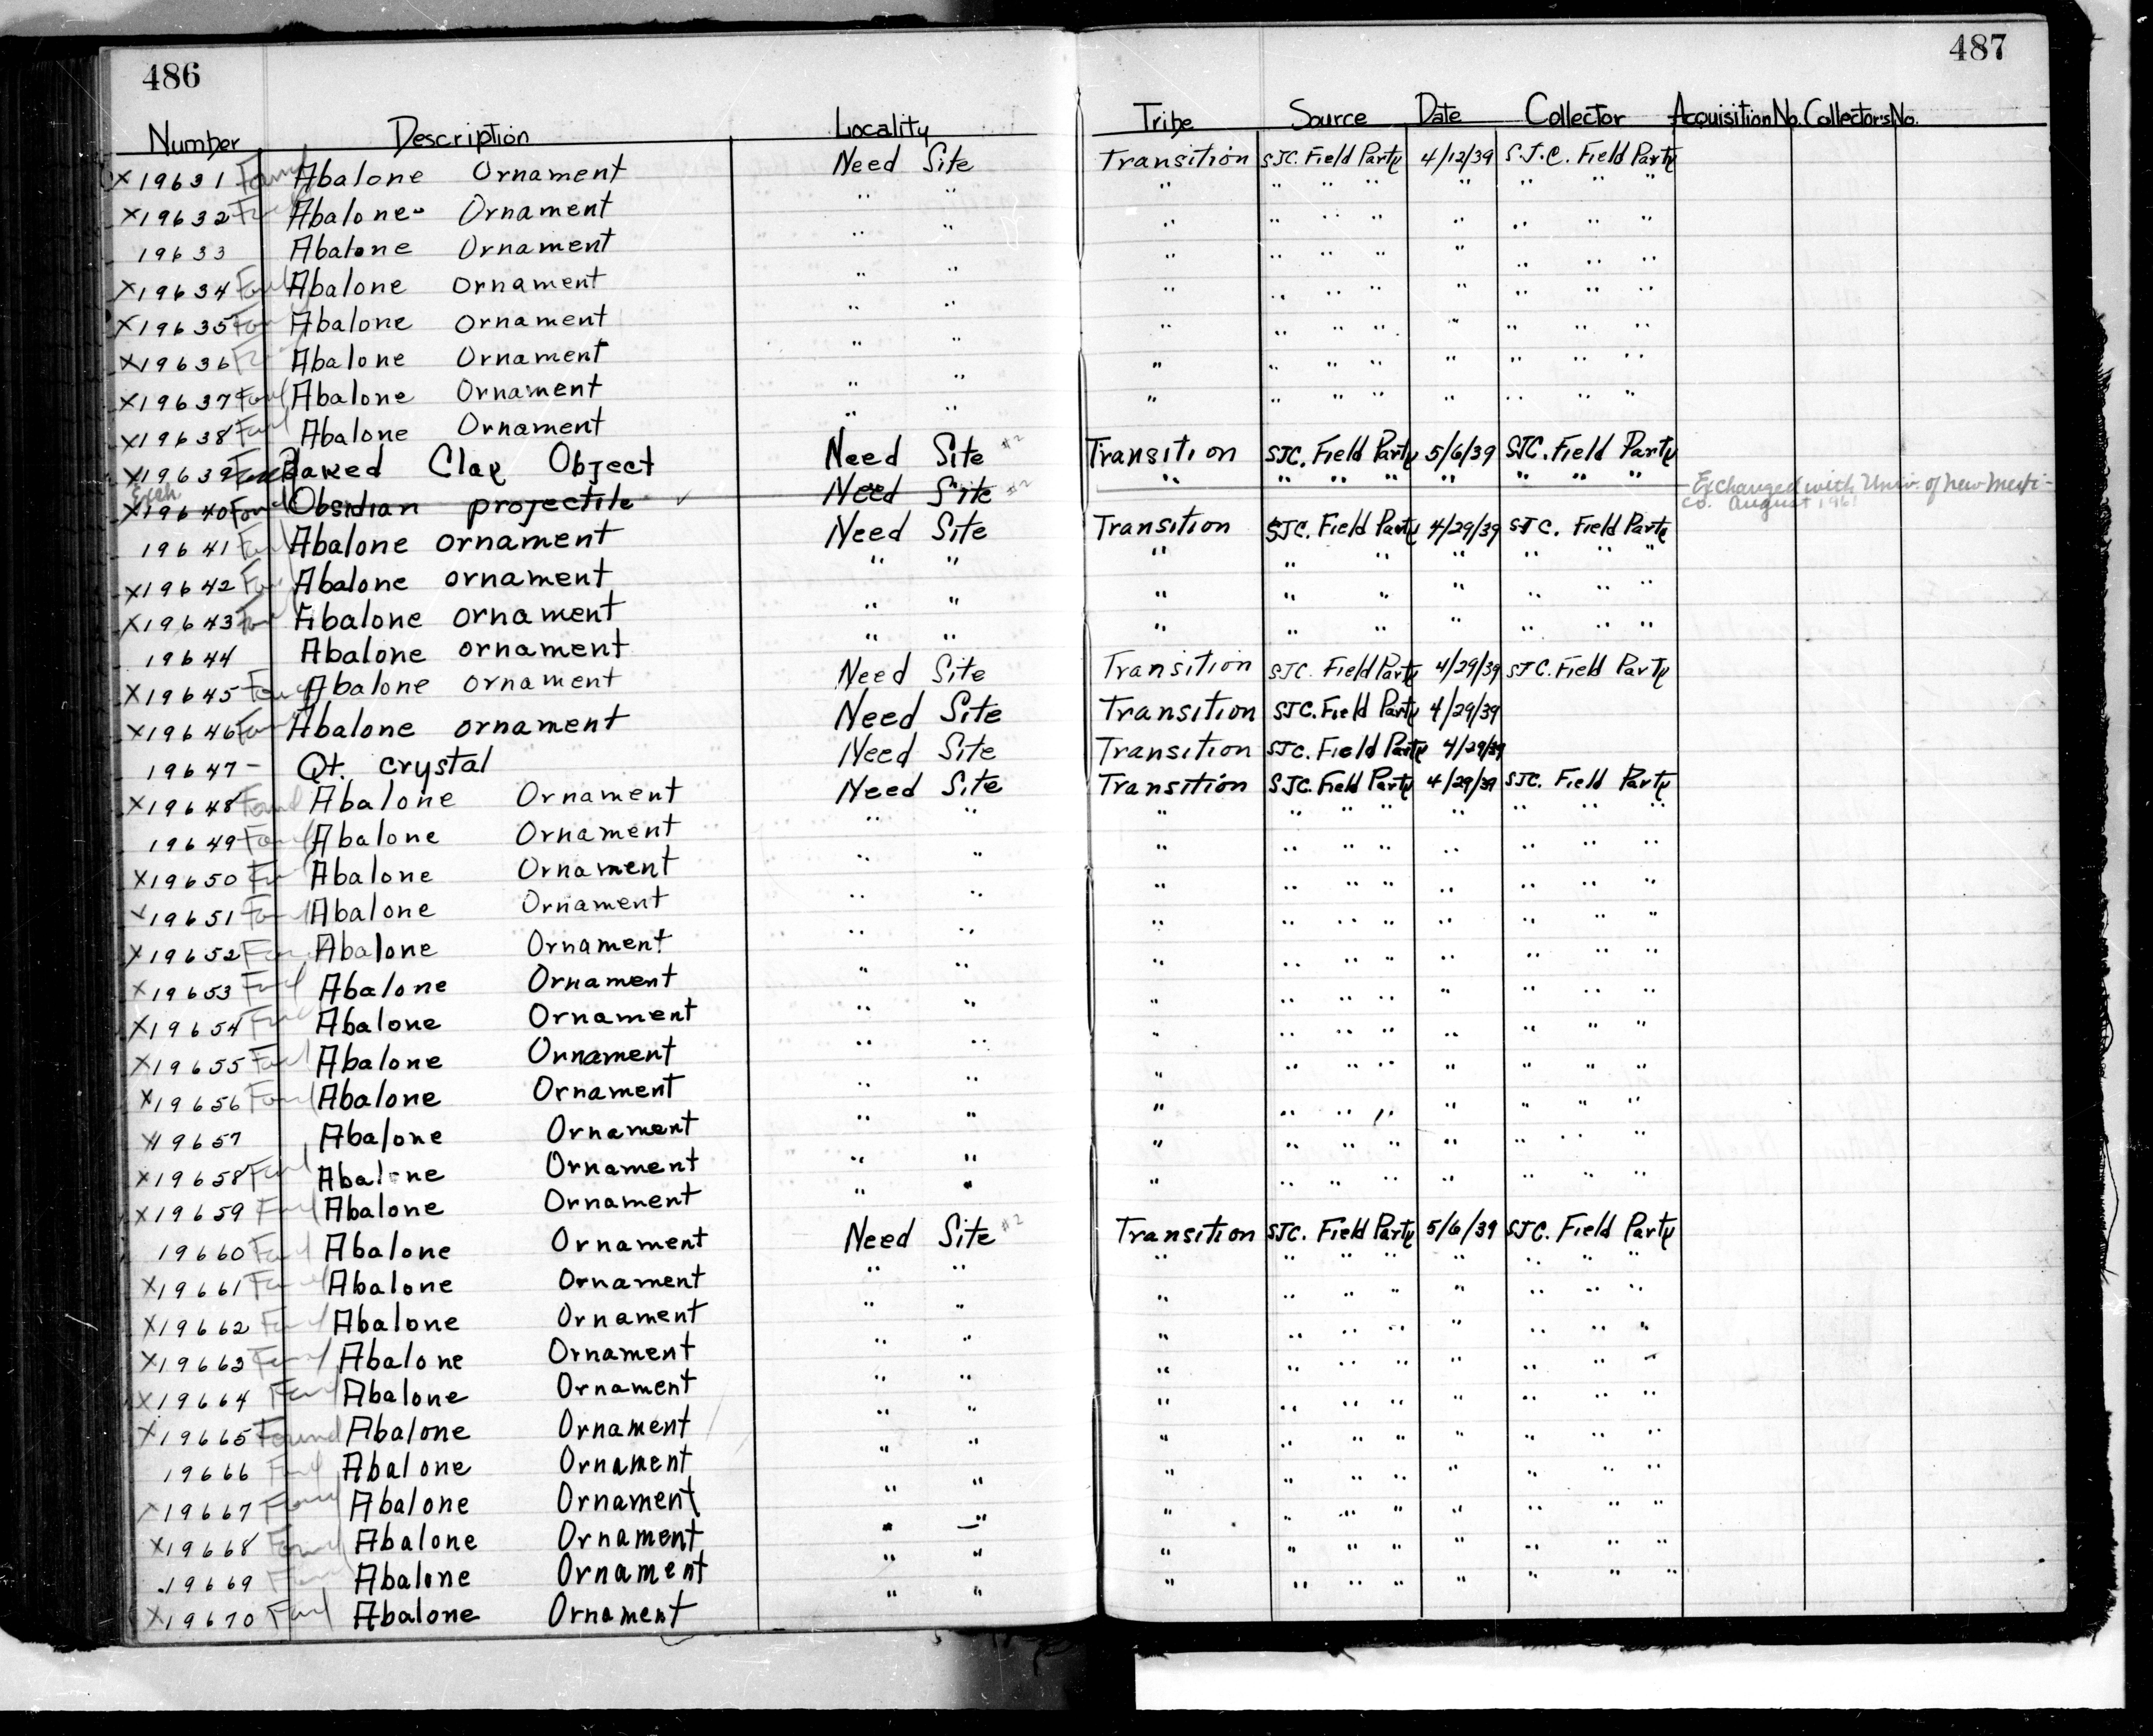 486
487
Number Description Locality Tribe Source Date Collector Acquisition No. Collectors No.
X19631 Found Abalone Ornament Need Site Transition SJC. Field Party 4/12/39 S.J.C. Field Party
X19632 Abalone Ornament " " " " " " " " " "
19633 Abalone Ornament " " " " " " " " " "
X19634 Found Abalone ornament " " " " " " " " " "
X19635 Found Abalone ornament " " " " " " " " " "
X19636 Abalone Ornament " " " " " " " " " "
X19637 Found Abalone Ornament " " " " " " " " " "
X19638 Found Abalone Ornament " " " " " " " " " "
X19639 Found Baked Clay Object Need Site #2 Transition SJC. Field Party 5/6/39 SJC. Field Party
Exch
X19640 Found Obsidian projectile ✓ Need Site #2 " " " " " " " " Exchanged with Univ. of New Mexi-
co. August 1961
19641 Found Abalone ornament Need Site Transition SJC. Field Party 4/29/39 SJC. Field Party
X19642 Found Abalone ornament " " " " " " " " "
X19643 Found Abalone ornament " " " " " " " " "
19644 Abalone ornament " " " " " " " " "
X19645 Found Abalone ornament Need Site Transition SJC. Field Party 4/29/39 SJC. Field Party
X19646 Found Abalone ornament Need Site Transition SJC. Field Party 4/29/39
19647 - Qt. crystal Need Site Transition SJC. Field Party 4/29/39
X19648 Found Abalone Ornament Need Site Transition SJC. Field Party 4/29/39 SJC. Field Party
19649 Found Abalone Ornament " " " " " " " " " "
X19650 Abalone Ornament " " " " " " " " " "
X19651 Found Abalone Ornament " " " " " " " " " "
X19652 Found Abalone Ornament " " " " " " " " " "
X19653 Found Abalone Ornament " " " " " " " " " "
X19654 Found Abalone Ornament " " " " " " " " " "
X19655 Found Abalone Ornament " " " " " " " " " "
X19656 Found Abalone Ornament " " " " " " " " " "
X19657 Abalone Ornament " " " " " " " " " "
X19658 Found Abalone Ornament " " " " " " " " " "
X19659 Found Abalone Ornament " " " " " " " " " "
19660 Found Abalone Ornament Need Site #2 Transition SJC. Field Party 5/6/39 SJC. Field Party
X19661 Found Abalone Ornament " " " " " " " " " "
X19662 Found Abalone Ornament " " " " " " " " " "
X19663 Found Abalone Ornament " " " " " " " " " "
X19664 Found Abalone Ornament " " " " " " " " " "
X19665 Found Abalone Ornament " " " " " " " " " "
19666 Found Abalone Ornament " " " " " " " " " "
X19667 Found Abalone Ornament " " " " " " " " " "
X19668 Found Abalone Ornament " " " " " " " " " "
19669 Found Abalone Ornament " " " " " " " " " "
X19670 Found Abalone Ornament " " " " " " " " " "